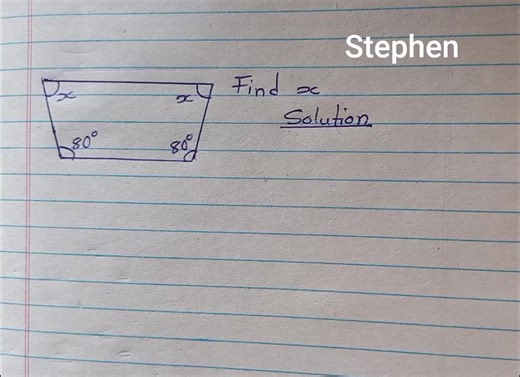 Stephen
Find x
x x
Solution
80° 80°